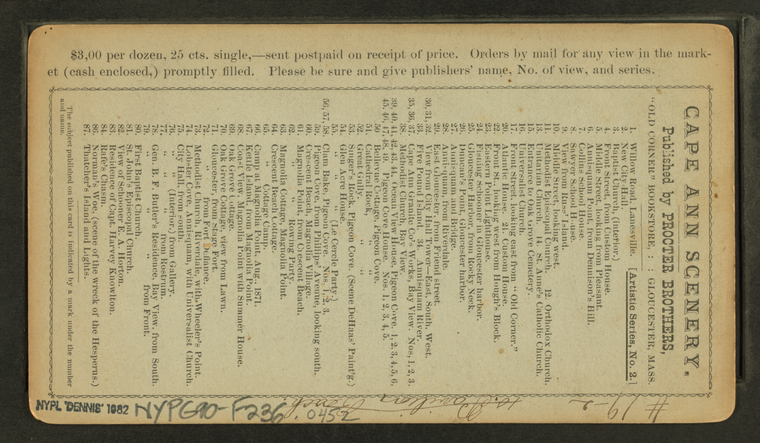 $3,00 per dozen, 25 cts. single,—sent postpaid on receipt of price. Orders by mail for any view in the mark-
et (cash enclosed,) promptly filled. Please be sure and give publishers' name, No. of view, and series.
CAPE ANN SCENERY.
Published by PROCTER BROTHERS,
"OLD CORNER" BOOKSTORE, : : GLOUCESTER, MASS.
[Artistic Series, No. 2.]
1. Willow Road, Lanesville.
2. New City-Hall.
3. Baptist Church, (interior.)
4. Front Street, near Custom House.
5. Middle Street, looking from Pleasant.
6. Annisquam, looking from Dennison's Hill.
7. Collins School House.
8. Sawyer School House.
9. View on Bass' Island.
10. Middle Street, looking west.
11. Methodist Church. 12. Orthodox Church.
13. Unitarian Church. 14. St. Anne's Catholic Church.
15. Entrance to Oak Grove Cemetery.
16. Universalist Church.
17. Front Street, looking east from "Old Corner."
22. Front St., looking west from Hough's Block.
23. Eastern Point Lighthouse.
24. Fishing Fleet, Gloucester harbor.
25. Gloucester Harbor, from Rocky Neck.
26. Eastern Point, Gloucester harbor.
27. Annisquam and Bridge.
28. Annisquam, from Riverdale.
29. East Gloucester, from Friend street.
30, 31, 32. View from City Hall Tower—East, South, West.
33. Five Pound Island. 34. Annisquam River.
35, 36, 37. Cape Ann Granite Co's Works, Bay View. Nos. 1, 2, 3.
38. Methodist Church, Bay View.
39, 40, 41, 42, 43, 44. Views from Pigeon Cove, 1, 2, 3, 4, 5, 6.
45, 46, 47, 48, 49. Pigeon Cove House. Nos. 1, 2, 3, 4, 5.
50. Bellevue Cottage, Pigeon Cove.
51. Cathedral Rocks, " "
52. Great Gully, " "
53. Singer's Rock, Pigeon Cove. (Scene DeHaas' Paint'g.)
54. Glen Acre House.
55. " " " (Le Cercle Party.)
56, 57, 58. Clam Bake, Pigeon Cove. Nos. 1, 2, 3.
59. Pigeon Cove, from Phillips' Avenue, looking south.
60. Crescent Beach, from Magnolia Village.
61. Magnolia Point, from Crescent Beach.
62. " " Rowing Party.
63. Magnolia Cottage, Magnolia Point.
64. Crescent Beach Cottage.
65. " " Cottage Camp.
66. Camp at Magnolia Point, Aug., 1871.
67. Kettle Island, from Magnolia Point.
68. Singer's View, Magnolia Point, with Summer House.
69. Oak Grove Cottage.
70. Oak Grove Cottage, view from Lawn.
71. Gloucester, from Stage Fort.
72. " from Fort Defiance.
73. Methodist Church, Riverdale, with Wheeler's Point.
74. Lobster Cove, Annisquam, with Universalist Church.
75. City Hall, from south.
76. " " (interior,) from Gallery.
77. " " " from Rostrum.
78. Gen. B. F. Butler's Residence, Bay View, from South.
79. " " " " from Front.
80. First Baptist Church.
81. St. John's Episcopal Church.
82. View of Schooner E. A. Horton.
83. Residence of Capt. Harvey Knowlton.
84. Rafe's Chasm.
86. Norman's Woe, (scene of the wreck of the Hesperus.)
87. Thatcher's Island and Lights.
The subject published on this card is indicated by a mark under the number
and name.
NYPL 'DENNIS' 1982 NYPG90-F236 .0452